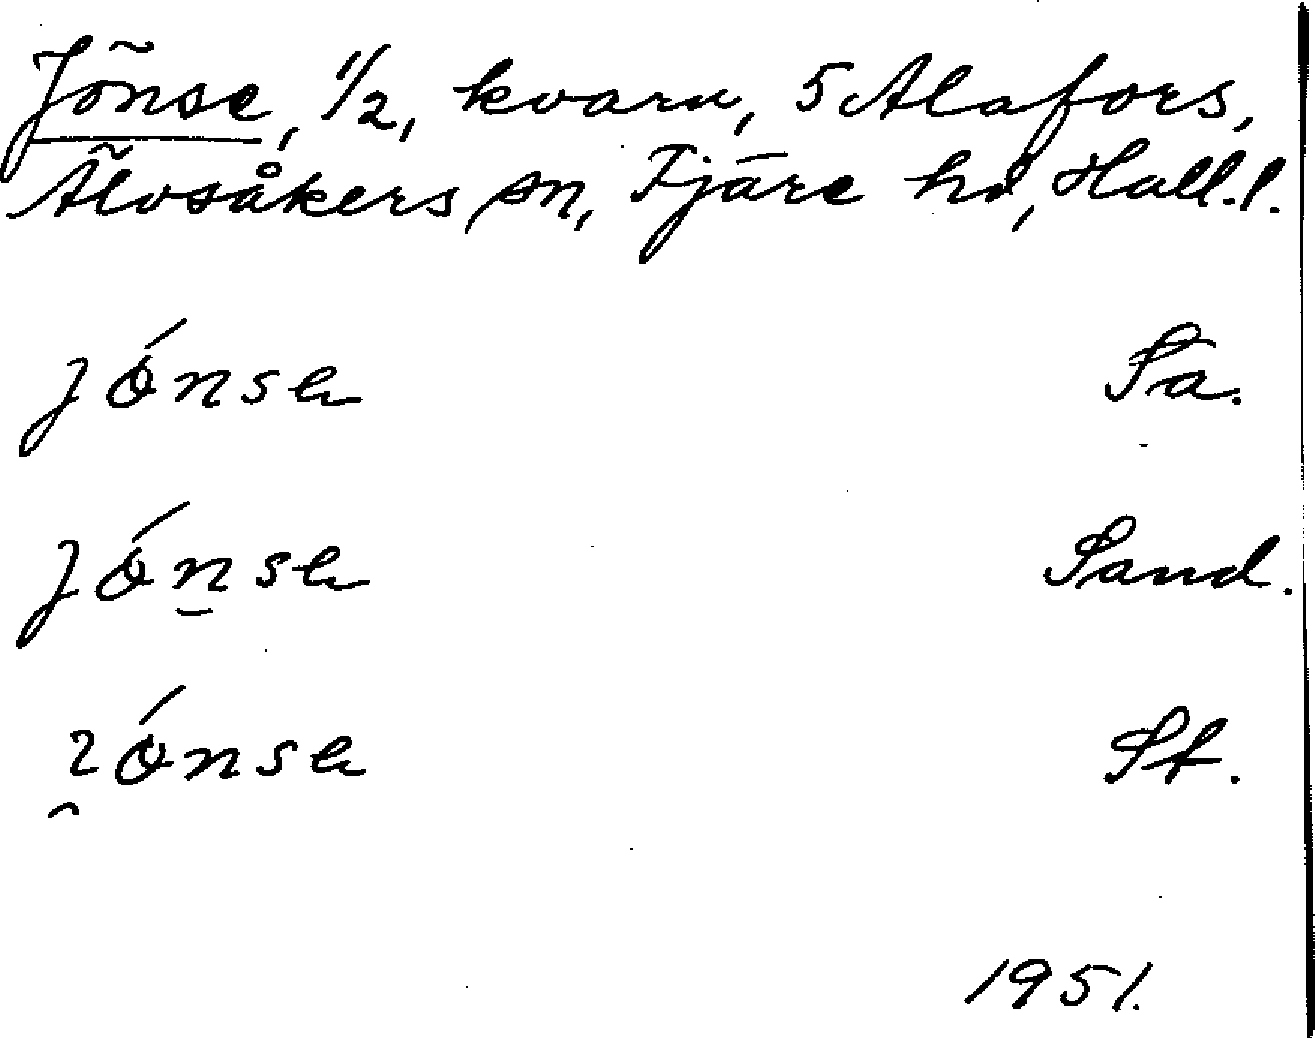 Jönse, 1/2, kvarn, 5 Alafors,
Älvsåkers sn, Fjäre hd, Hall. l.
jǿnsen Sa.
jǿnsen Sand.
ʅǿnsen St.
1951.